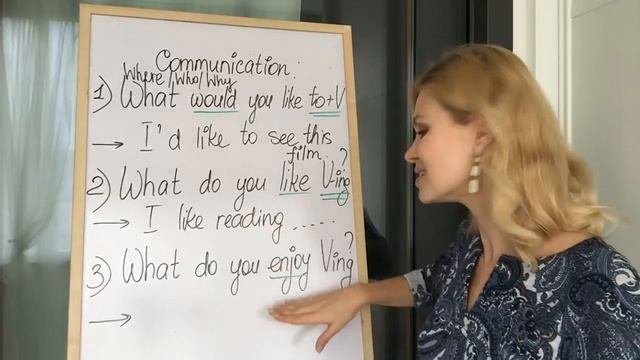 Communication:
Where/Who/Why
1) What would you like to+V
→ I'd like to see this
film.
2) What do you like V-ing?
→ I like reading .....
3) What do you enjoy Ving?
→